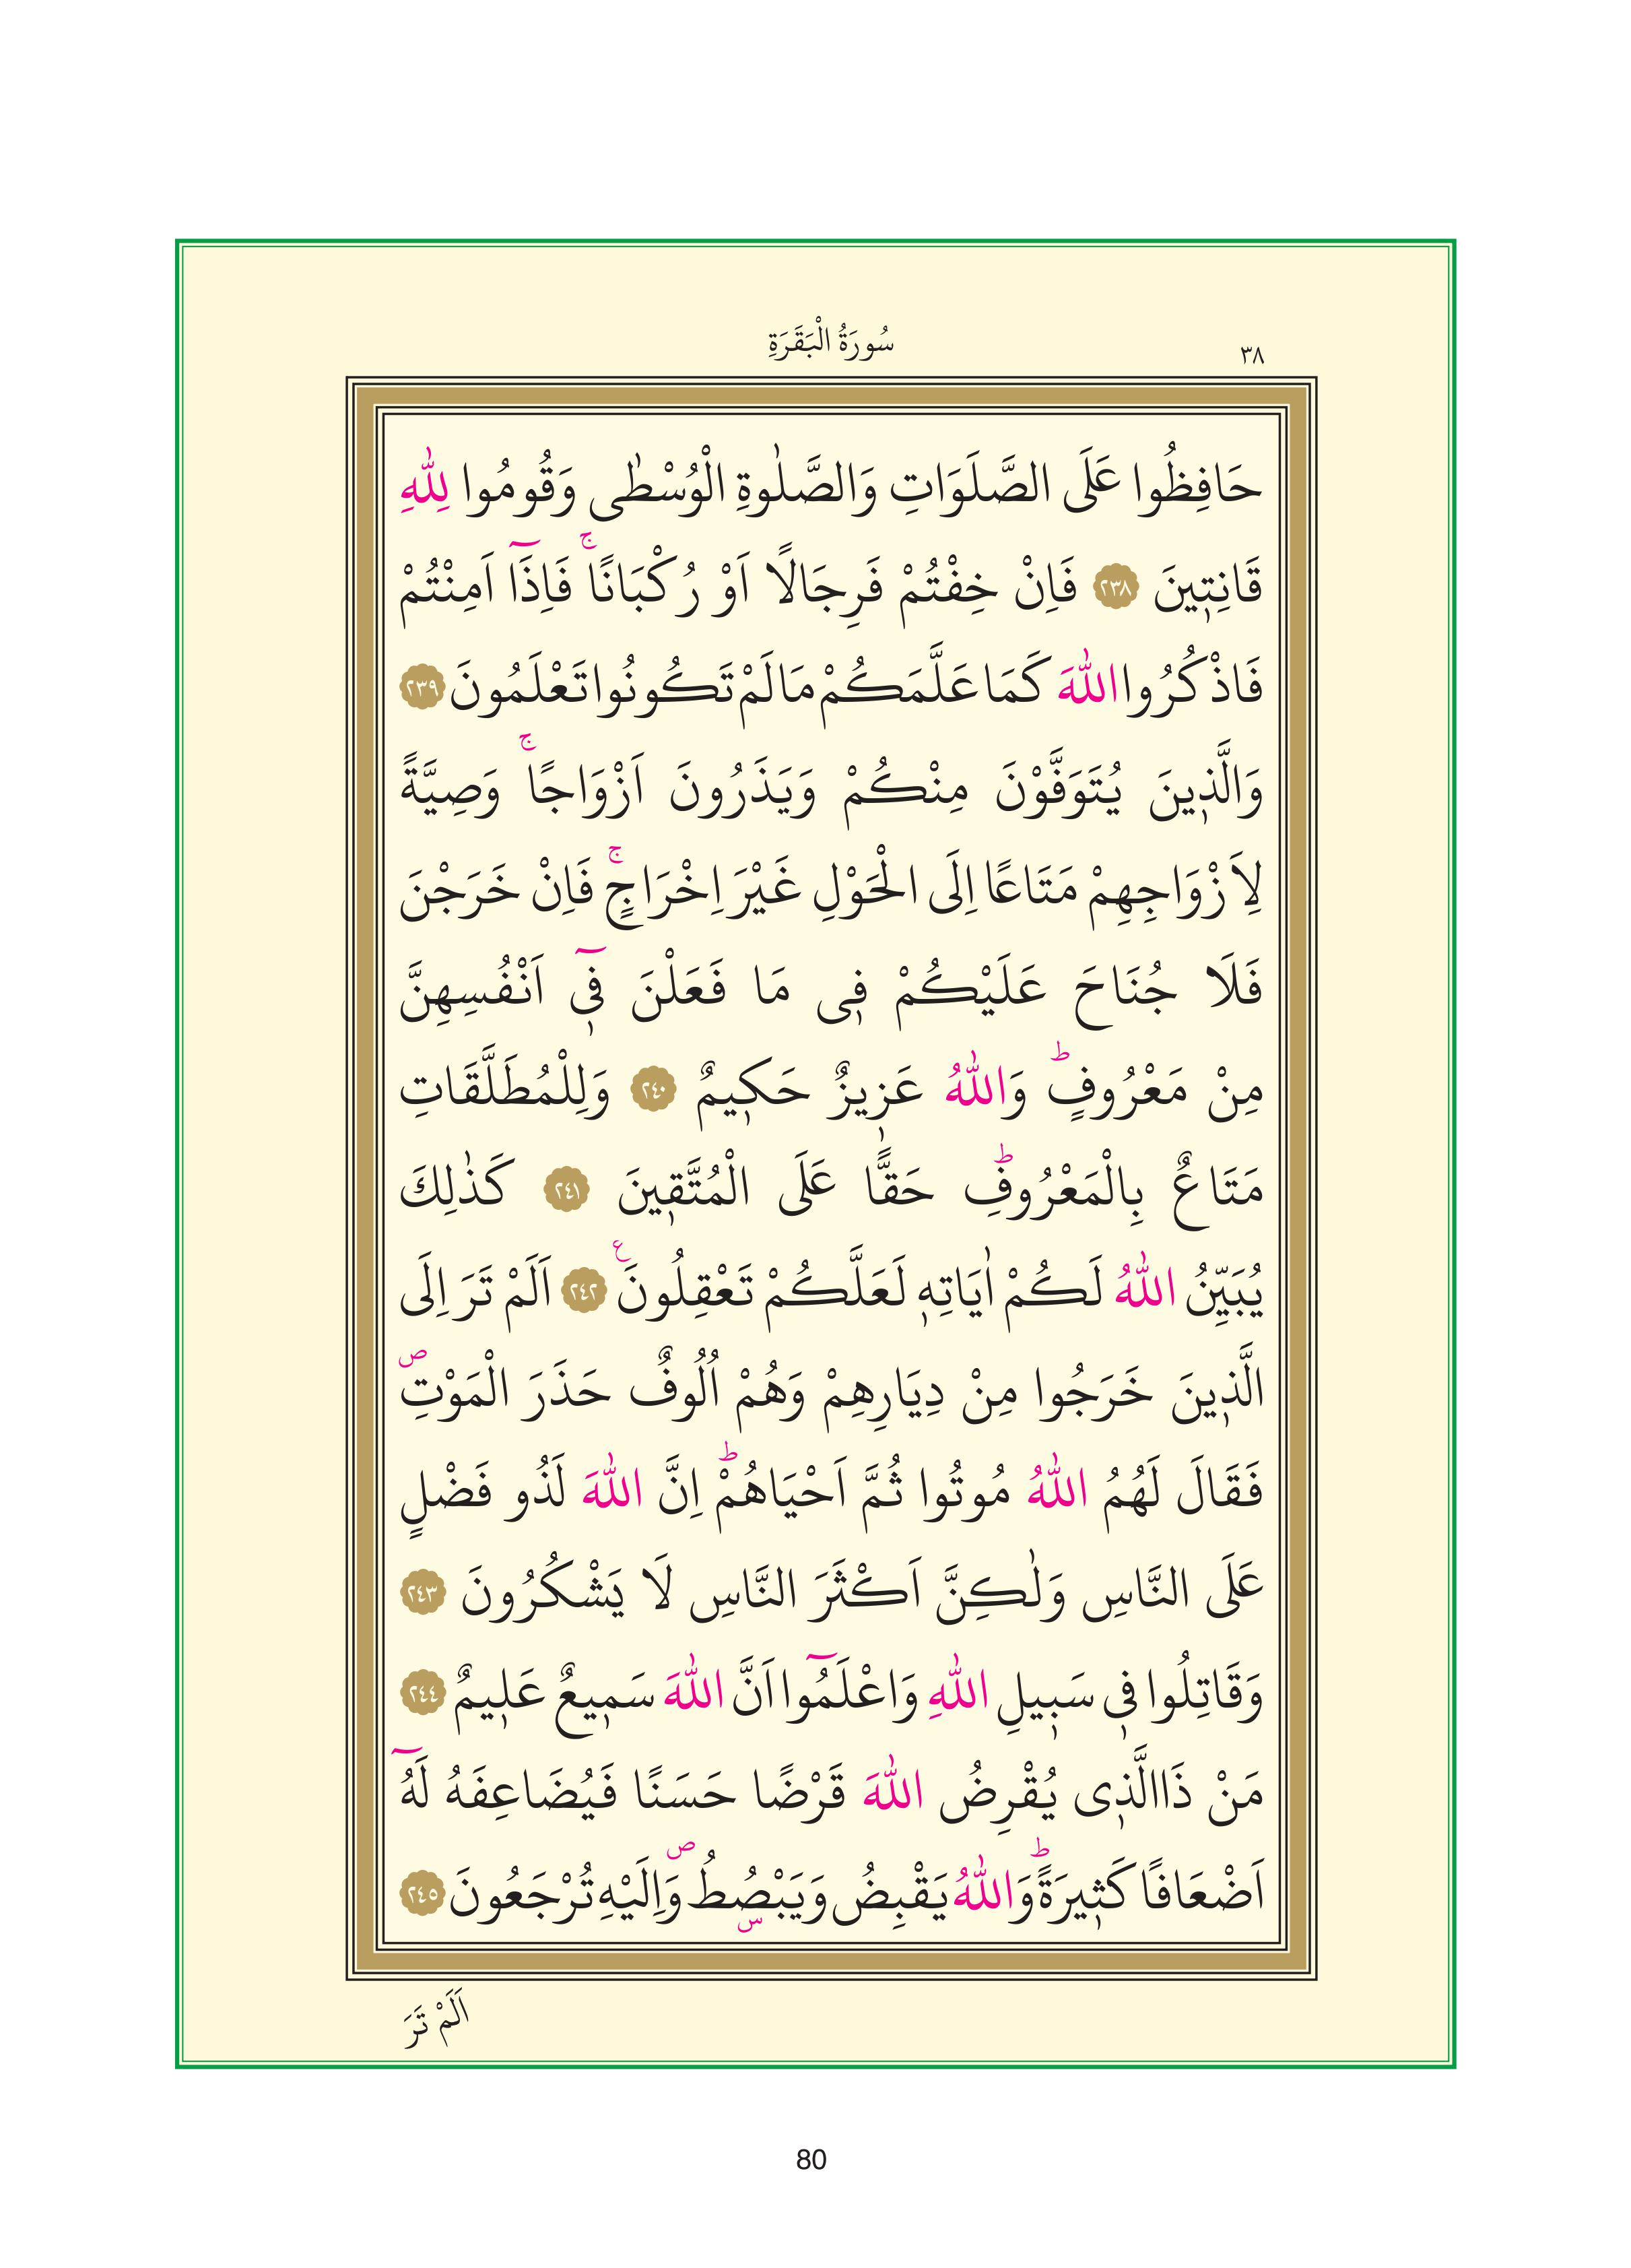 ٣٨
سُورَةُ الْبَقَرَةِ
حَافِظُوا عَلَى الصَّلَوَاتِ وَالصَّلٰوةِ الْوُسْطٰى وَقُومُوا لِلّٰهِ
قَانِت۪ينَ ﴿٢٣٨﴾ فَاِنْ خِفْتُمْ فَرِجَالًا اَوْ رُكْبَانًاۚ فَاِذَٓا اَمِنْتُمْ
فَاذْكُرُوا اللّٰهَ كَمَا عَلَّمَكُمْ مَا لَمْ تَكُونُوا تَعْلَمُونَ ﴿٢٣٩﴾
وَالَّذ۪ينَ يُتَوَفَّوْنَ مِنْكُمْ وَيَذَرُونَ اَزْوَاجًاۚ وَصِيَّةً
لِاَزْوَاجِهِمْ مَتَاعًا اِلَى الْحَوْلِ غَيْرَ اِخْرَاجٍۚ فَاِنْ خَرَجْنَ
فَلَا جُنَاحَ عَلَيْكُمْ ف۪ى مَا فَعَلْنَ ف۪ٓى اَنْفُسِهِنَّ
مِنْ مَعْرُوفٍۜ وَاللّٰهُ عَز۪يزٌ حَك۪يمٌ ﴿٢٤٠﴾ وَلِلْمُطَلَّقَاتِ
مَتَاعٌ بِالْمَعْرُوفِۜ حَقًّا عَلَى الْمُتَّق۪ينَ ﴿٢٤١﴾ كَذٰلِكَ
يُبَيِّنُ اللّٰهُ لَكُمْ اٰيَاتِه۪ لَعَلَّكُمْ تَعْقِلُونَ ع ﴿٢٤٢﴾ اَلَمْ تَرَ اِلَى
الَّذ۪ينَ خَرَجُوا مِنْ دِيَارِهِمْ وَهُمْ اُلُوفٌ حَذَرَ الْمَوْتِ ص
فَقَالَ لَهُمُ اللّٰهُ مُوتُوا ثُمَّ اَحْيَاهُمْۜ اِنَّ اللّٰهَ لَذُو فَضْلٍ
عَلَى النَّاسِ وَلٰكِنَّ اَكْثَرَ النَّاسِ لَا يَشْكُرُونَ ﴿٢٤٣﴾
وَقَاتِلُوا ف۪ى سَب۪يلِ اللّٰهِ وَاعْلَمُٓوا اَنَّ اللّٰهَ سَم۪يعٌ عَل۪يمٌ ﴿٢٤٤﴾
مَنْ ذَا الَّذ۪ى يُقْرِضُ اللّٰهَ قَرْضًا حَسَنًا فَيُضَاعِفَهُ لَهُٓ
اَضْعَافًا كَث۪يرَةًۜ وَاللّٰهُ يَقْبِضُ وَيَبْصُۣطُ ص وَاِلَيْهِ تُرْجَعُونَ ﴿٢٤٥﴾
اَلَمْ تَرَ
80